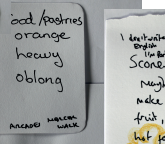 ood/pastries
orange
heavy
oblong
ARCADES
WALK
I don't write
English
Scone
make
fruit,
hot